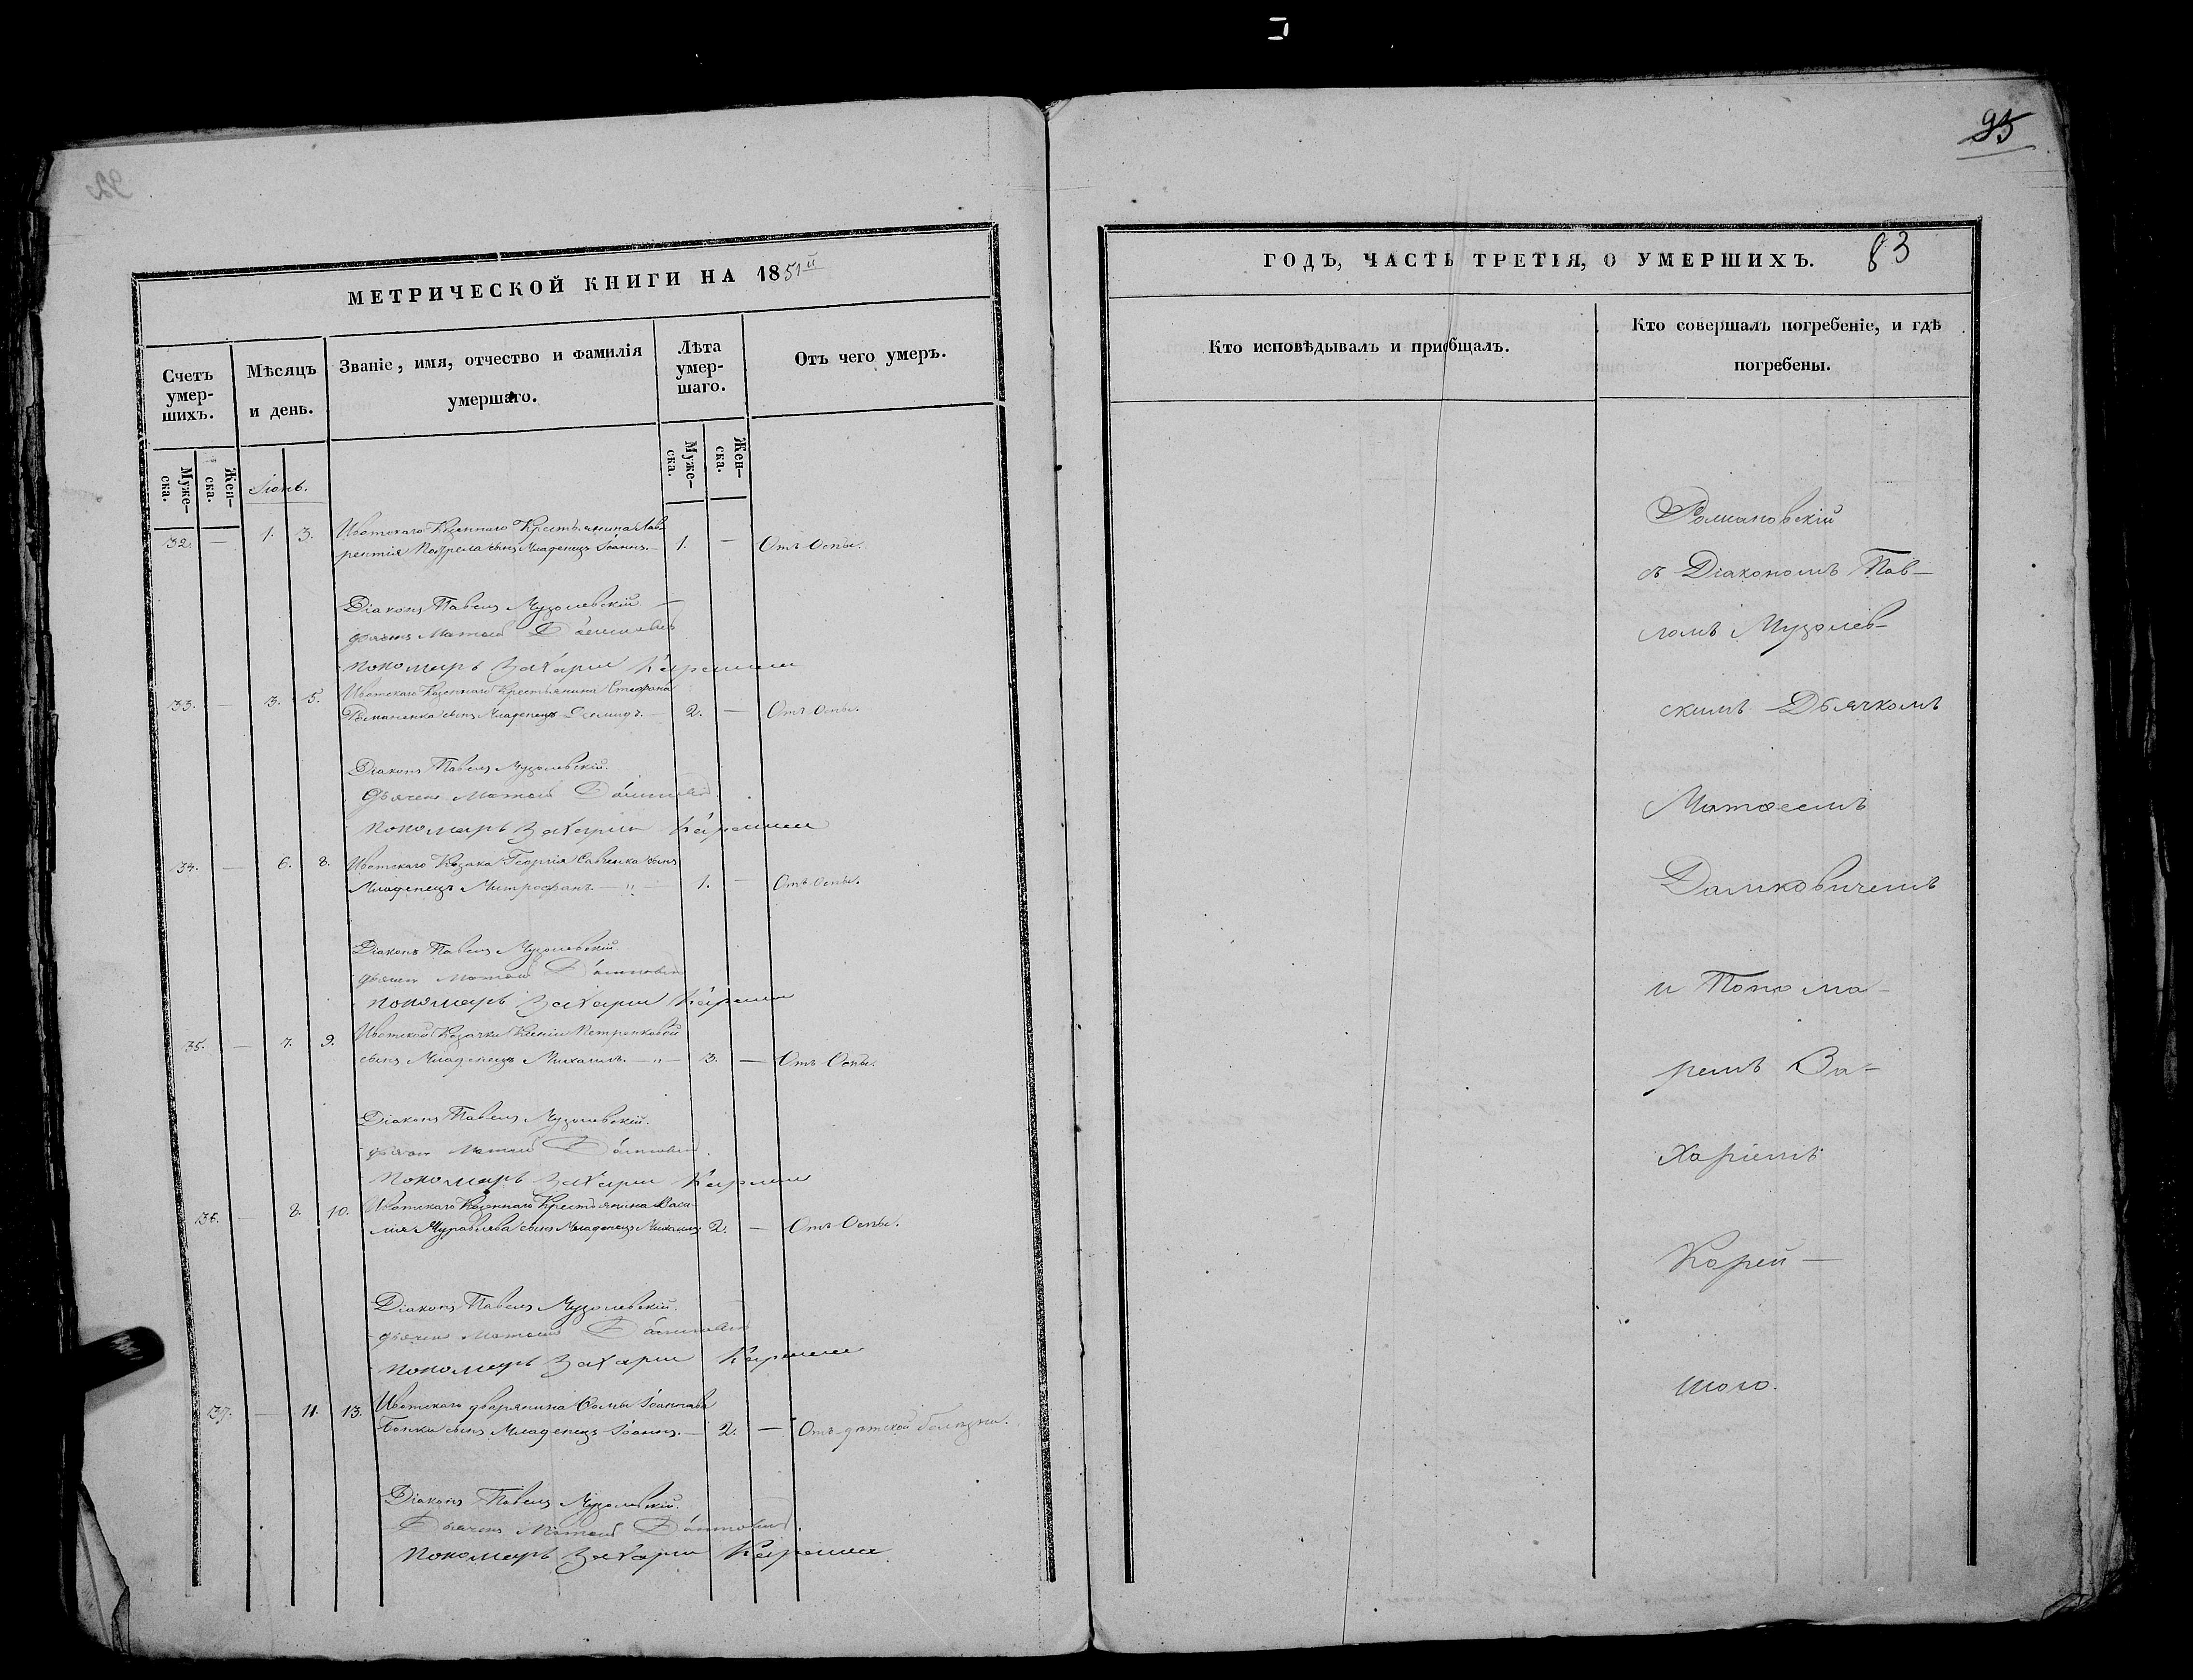 95
83
МЕТРИЧЕСКОЙ КНИГИ НА 1851й
Счетъ умер-
шихъ.
Мѣсяцъ
и день.
Званіе, имя, отчество и фамилія
умершаго.
Лѣта
умер-
шаго.
Отъ чего умеръ.
Муже-
ска.
Жен-
ска.
Муже-
ска.
Жен-
ска.
Іюнь.
32. — 1. 3. Ивотскаго Козеннаго Крестьянина Лав-
рентія сынъ Младенецъ Іоаннъ. — 1. — Отъ Оспы.
Діаконъ Павелъ Музолевскій
Дьячекъ Матѳей
Пономарь Захарій
33. — 3. 5. Ивотскаго Козеннаго Крестьянина Стефана
сынъ Младенецъ — 2. — Отъ Оспы.
Діаконъ Павелъ Музолевскій.
Дьячекъ Матѳей
Пономарь Захарій
34. — 6. 8. Ивотскаго Козака Георгія Савченка сынъ
Младенецъ Митрофанъ. — " — 1. — Отъ Оспы.
Діаконъ Павелъ Музолевскій
Дьячекъ Матѳей
Пономарь Захарій
35. — 7. 9. Ивотской Козачки Ксеніи Петренковой
сынъ Младенецъ Михаилъ. — " — 3. — Отъ Оспы.
Діаконъ Павелъ Музолевскій.
Дьячекъ Матѳей
Пономарь Захарій
36. — 8. 10. Ивотскаго Козеннаго Крестьянина Васи-
лія Муравлева сынъ Младенецъ Михаилъ 2. — Отъ Оспы.
Діаконъ Павелъ Музолевскій.
Дьячекъ Матѳей
Пономарь Захарій
37. — 11. 13. Ивотскаго дворянина Ѳомы Іоаннова
сынъ Младенецъ Іоаннъ. — 2. — Отъ дѣтской болѣзни.
Діаконъ Павелъ Музолевскій.
Дьячекъ Матѳей
Пономарь Захарій
ГОДЪ, ЧАСТЬ ТРЕТІЯ, О УМЕРШИХЪ.
Кто исповѣдывалъ и пріобщалъ.
Кто совершалъ погребеніе, и гдѣ
погребены.
Романовскій
съ Діакономъ Пав-
ломъ Музолев-
скимъ Дьячкомъ
Матѳеемъ
Даликовичемъ
и Понома-
ремъ За-
харіемъ
Корей-
шого.